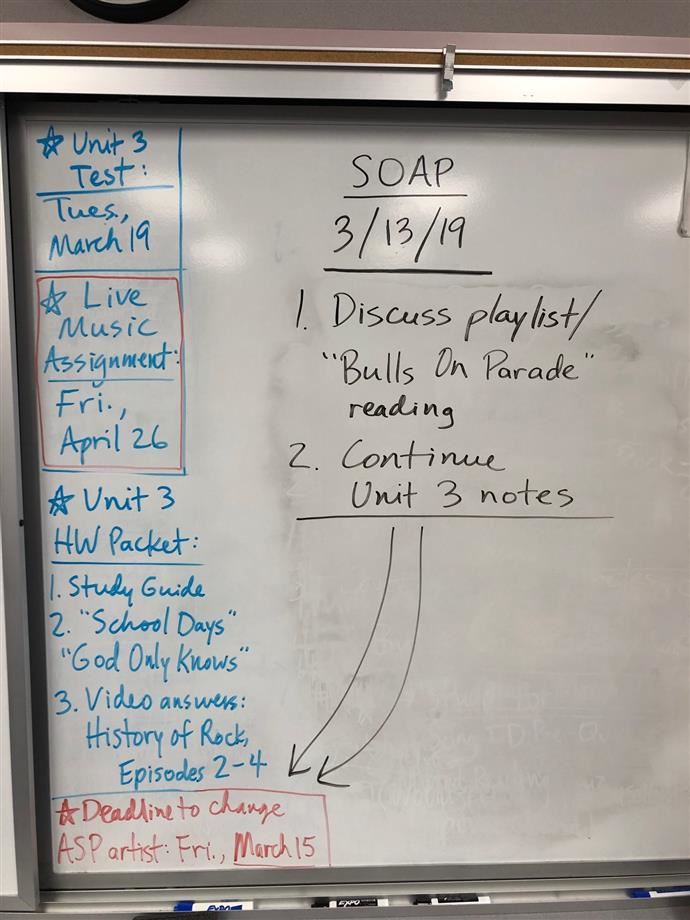 ☆ Unit 3
Test:
Tues.,
March 19
☆ Live
Music
Assignment:
Fri.,
April 26
☆ Unit 3
HW Packet:
1. Study Guide
2. "School Days"
"God Only Knows"
3. Video answers:
History of Rock,
Episodes 2-4
☆ Deadline to change
ASP artist: Fri., March 15
SOAP
3/13/19
1. Discuss playlist/
"Bulls On Parade"
reading
2. Continue
Unit 3 notes
EXPO
EXPO
EXPO